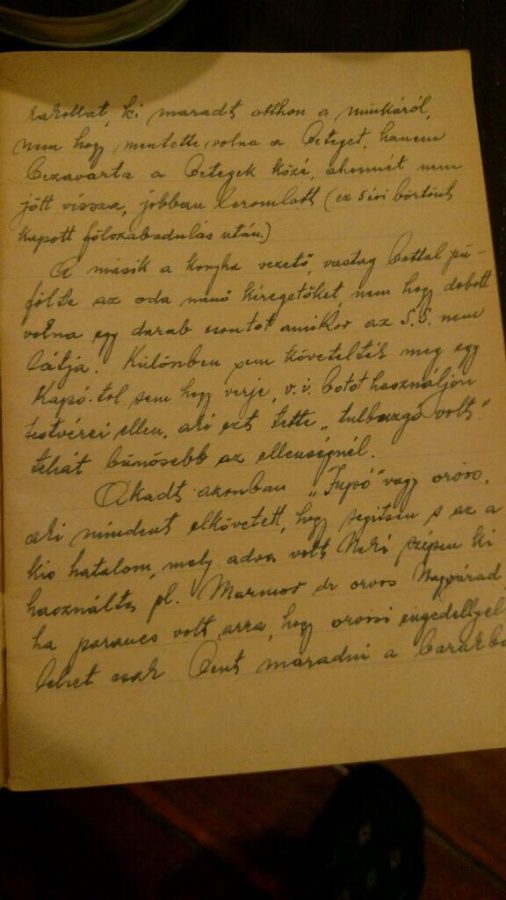 rakottat, ki maradt otthon a munkáról,
nem hogy mentette volna a beteget, hanem
bezavarta a betegek közé, ahonnét nem
jött vissza, jobban leromlott (ez 5 évi börtönt
kapott fölszabadulás után.)
A másik a konyha vezető, vastag bottal pü-
fölte az oda menő kéregetőket, nem hogy dobott
volna egy darab csontot amikor az S.S. nem
látja. Különben sem követelték meg egy
Kapó-tol sem hogy verje, v.i. botot használjon
testvérei ellen, aki ezt tette „tulbuzgó volt"
tehát bűnösebb az ellenségnél.
Akadt azonban „Kapó" vagy orvos,
aki mindent elkövetett, hogy segitsen s az a
kis hatalom, mely adva volt Neki szépen ki
használta pl. Marmor dr orvos Nagyvárad,
ha parancs volt arra, hogy orvosi engedéllyel
lehet csak bent maradni a barakba